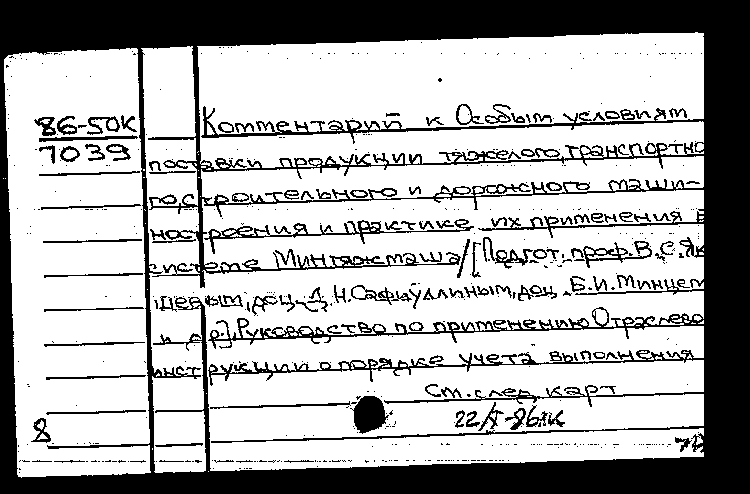 86-50К
7039
Комментарий к Особым условиям
поставки продукции тяжелого, транспортно
го, строительного и дорожного маши-
ностроения и практике их применения в
системе Минтяжмаша / [Подгот. проф. В.С. Як
шевым, доц. Д.Н. Сафиуллиным, доц. Б.И. Минцем
и др.]. Руководство по применению Отраслево
инструкции о порядке учета выполнения
См. след карт
8